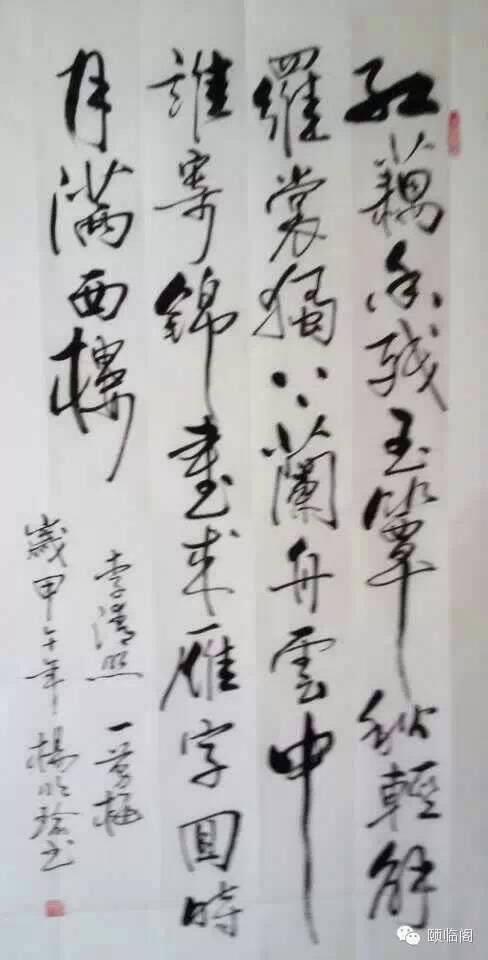 红藕香残玉簟秋輕解
羅裳獨上蘭舟雲中
誰寄錦書来雁字回時
月滿西樓
李清照 一剪梅
歲甲午年 楊书
颐临阁